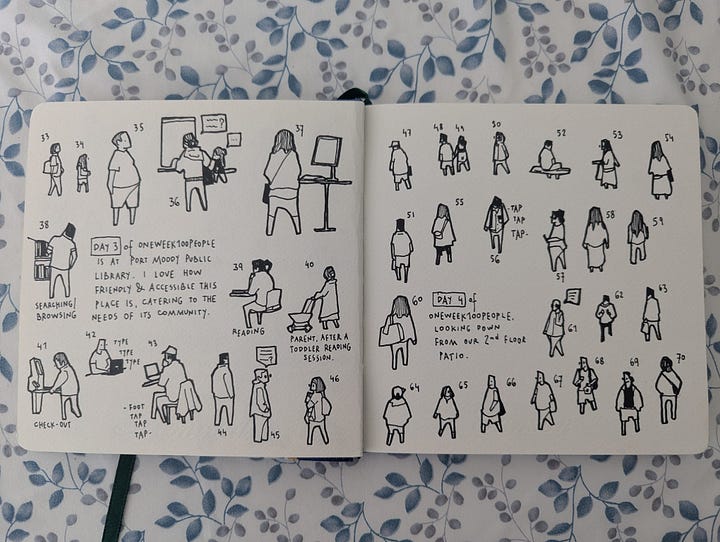 33
34
35
36
?
37
38
SEARCHING/
BROWSING
DAY 3 of ONEWEEK100PEOPLE
IS AT PORT MOODY PUBLIC
LIBRARY. I LOVE HOW
FRIENDLY & ACCESSIBLE THIS
PLACE IS, CATERING TO THE
NEEDS OF ITS COMMUNITY.
39
READING
40
PARENT, AFTER A
TODDLER READING
SESSION.
41
CHECK-OUT
42
TYPE
TYPE
TYPE
43
- FOOT
TAP
TAP
TAP -
44
?
45
46
47
48
49
50
52
53
54
51
55
- TAP
TAP
TAP -
56
57
58
59
60
DAY 4 of
ONEWEEK100PEOPLE.
LOOKING DOWN
FROM OUR 2nd FLOOR
PATIO.
61
62
63
64
65
66
67
68
69
70